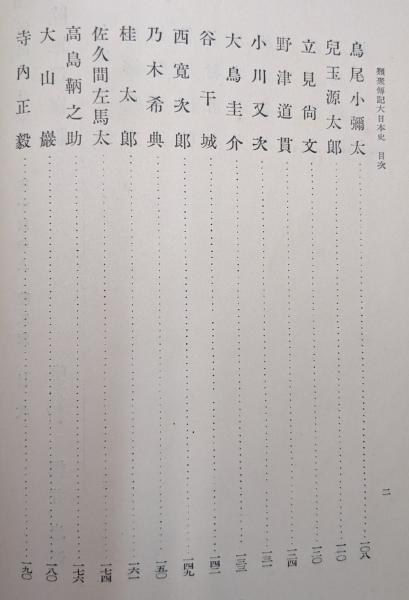 類聚傳記大日本史 目次
鳥尾小彌太……一〇八
兒玉源太郎……一一〇
立見尙文……一二〇
野津道貫……一二四
小川又次……一三一
大鳥圭介……一三三
谷干城……一四二
西寬次郎……一四九
乃木希典……一五〇
桂太郎……一六一
佐久間左馬太……一七四
高島鞆之助……一七六
大山巖……一八〇
寺內正毅……一九〇
二